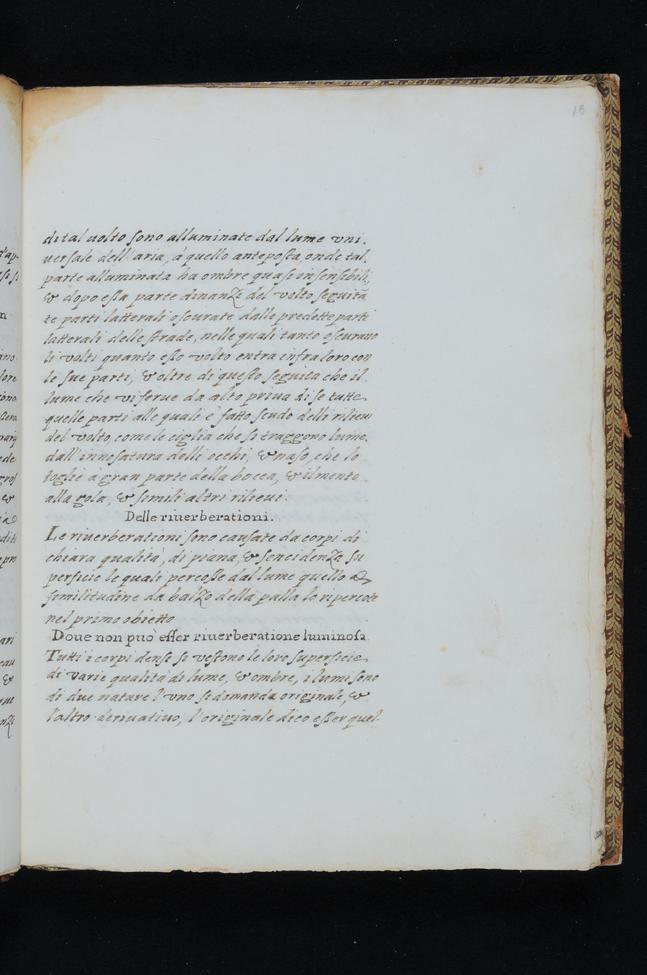 18
di tal uolto sono alluminate dal lume vni.
uersale dell'aria, á quello anteposta, onde tal
parte alluminata ha ombre quase insensibili,
& dopo essa parte dinanze del volto seguita
te parti latterali oscurate dalle predette parti
latterali delle strade, nelle quali tanto oscurano
li volti quanto esso volto entra infra loro con
le sue parti, & oltre di questo seguita che il
lume che vi serue da alto priua di se tutte
quelle parti alle quali é fatto scudo delli rilieui
del volto, come le ciglia che si traggono lume,
dall'innosatura delli occhi, & naso, che lo
toglie a gran parte della bocca, & il mento
alla gola, & simili altri rilieui.
Delle riuerberationi.
Le riuerberationi sono causate da corpi di
chiara qualitá, di piana, & semidenza su
perficie le quali percosse dal lume quello a
similitudine da balzo della palla lo ripercote
nel primo obietto
Doue non puo esser riuerberatione luminosa
Tutti i corpi dense si vestono le loro superficie
di varie qualitá de lume, & ombre, i lumi sono
di due nature l'vno se dimanda originale, &
l'altro deriuatiuo, l'originale dico esser quel